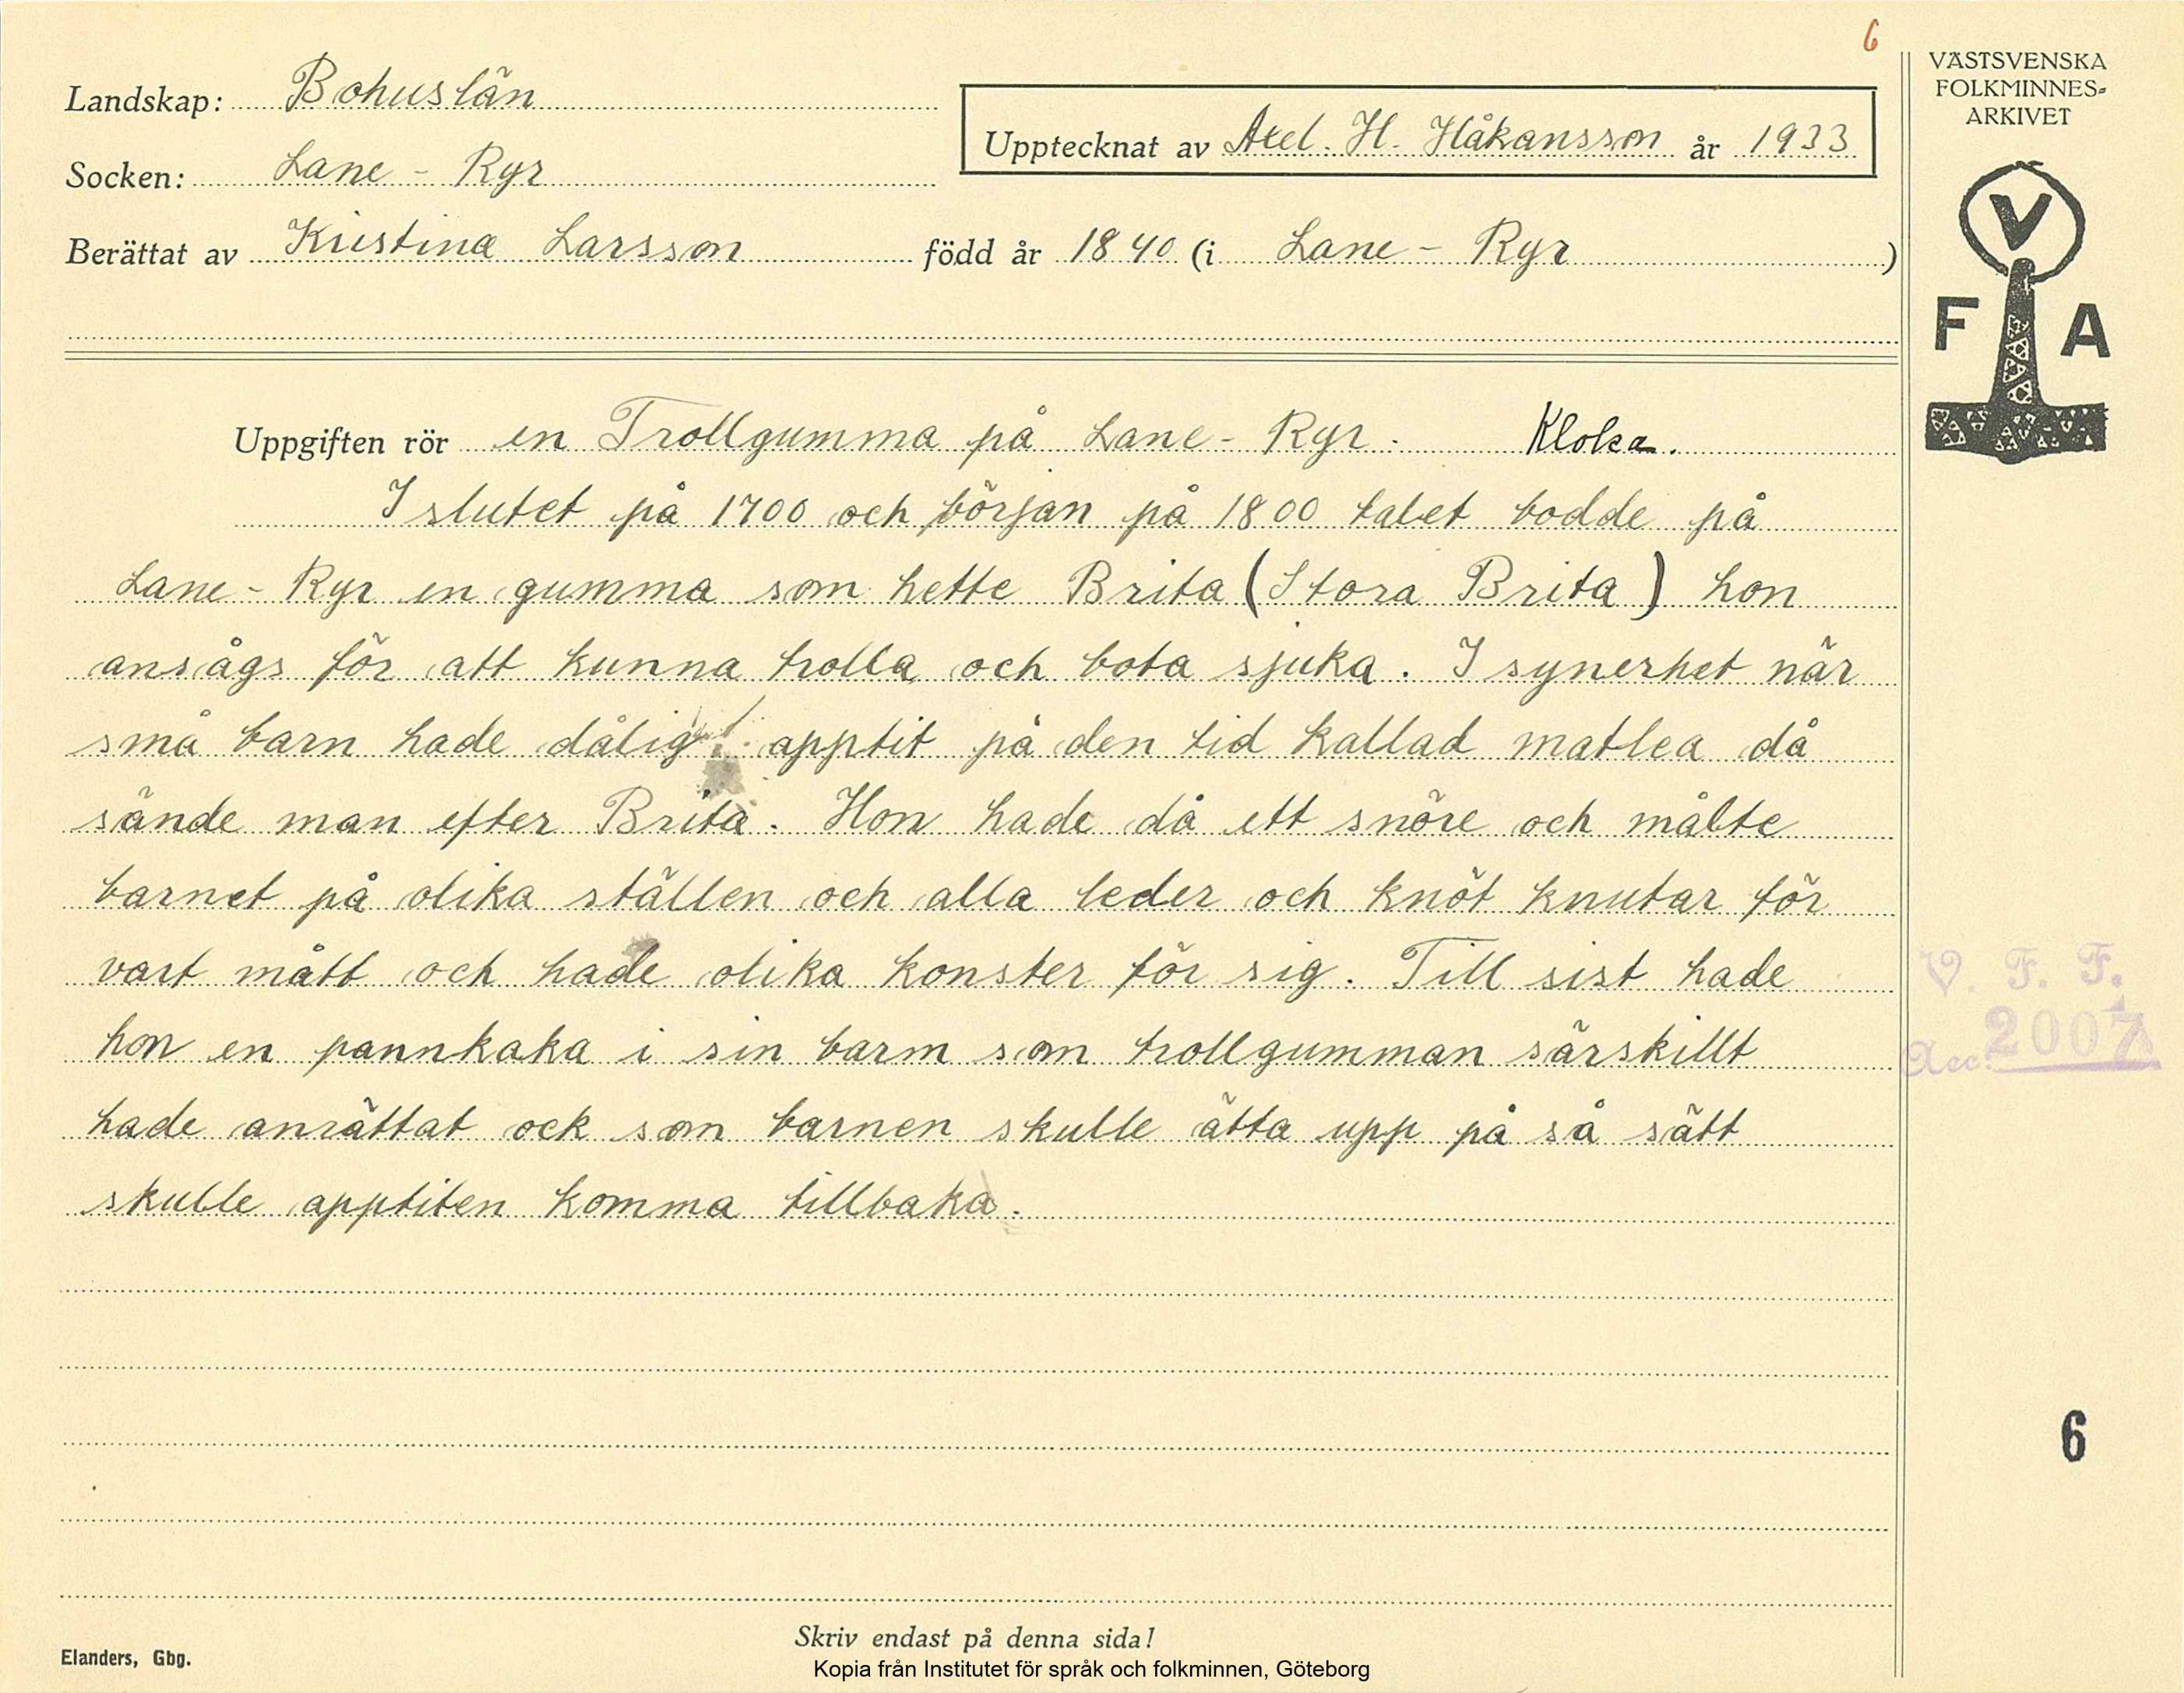 6
Landskap: Bohuslän
Socken: Lane - Ryr
Upptecknat av Axel. H. Håkansson år 1933
Berättat av Kristina Larsson född år 1840 (i Lane - Ryr )
VÄSTSVENSKA
FOLKMINNES-
ARKIVET
V
F A
Uppgiften rör en Trollgumma på Lane - Ryr. Kloka.
I slutet på 1700 och början på 1800 talet bodde på
Lane - Ryr en gumma som hette Brita (Stora Brita) hon
ansågs för att kunna trolla och bota sjuka. I synerhet när
små barn hade dålig apptit på den tid kallad matlea då
sände man efter Brita. Hon hade då ett snöre och mälte
barnet på olika ställen och alla leder och knöt knutar för
vart mått och hade olika konster för sig. Till sist hade
hon en pannkaka i sin barm som trollgumman särskillt
hade anrättat ock som barnen skulle ätta upp på så sätt
skulle apptiten komma tillbaka.
V. F. F.
Acc. 2007
6
Skriv endast på denna sida!
Elanders, Gbg.
Kopia från Institutet för språk och folkminnen, Göteborg